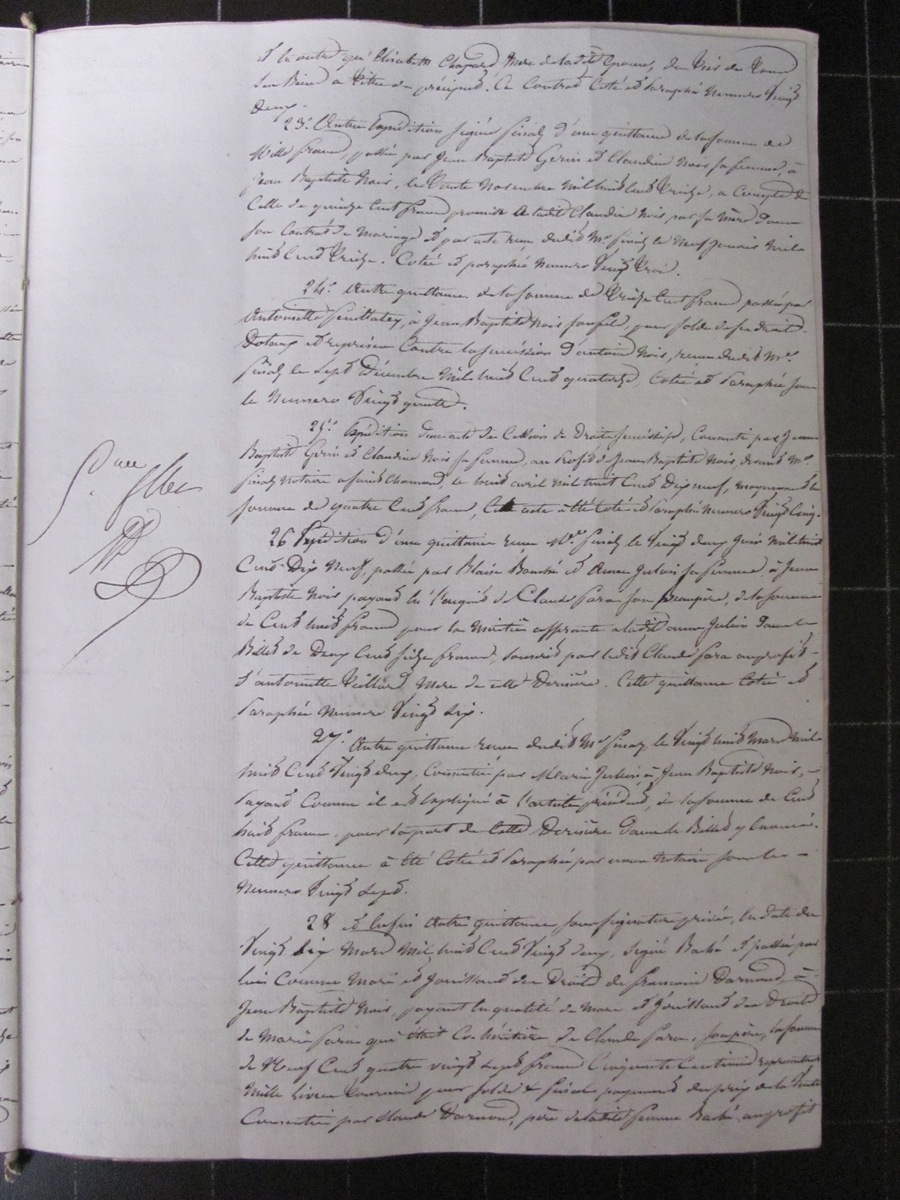 et la outre qu'Elisabeth Chapard Mere de ladite Epouse, de
ses Biens a titre de préciput. Ce Contrat Coté et Paraphé Numero Vingt
deux.
23.º Autre Expédition signée finaz d'une quittance de la somme de
Mille francs, passée par Jean Baptiste Gerin et Claudine Nois sa femme, à
Jean Baptiste Nois, le trente Novembre mil huit cent treize, a Compte de
Celle de quinze Cent francs promise à ladite Claudine Nois par sa Mère dans
son Contrat de Mariage et par acte reçu dudit Me finaz le Neuf Janvier mil
huit Cent treize. Cotée et paraphée Numero Vingt trois.
24.º Autre quittance de la somme de treize Cent francs passée par
Antoinette, à Jean Baptiste Nois son fils, pour solde de ses droits
Dotaux et reprises Contre la succession d'Antoine Nois, reçue dudit Me
finaz le sept Décembre Mil huit Cent quatorze, Cotée et Paraphée sous
le Numero Vingt quatre.
25.º Expédition d'un acte de Cession de Droits successifs, Consenti par Jean
Baptiste Gerin et Claudine Nois sa femme, au Profit de Jean Baptiste Nois, devant Me
finaz Notaire a saint Chamond, le huit avril mil huit Cent Dix neuf, moyennant la
somme de quatre Cent francs, Cet acte a été Coté et Paraphé Numero Vingt Cinq.
26 Expédition d'une quittance reçue Me finaz le Vingt deux Juin Mil huit
Cent Dix Neuf, passée par Blaise Bonché et Anne Julien sa femme, à Jean
Baptiste Nois payant en l'acquit de Claude Sara son beaupère, de la somme
de Cent huit francs pour la Moitié afferante a ladite anne Julien Dans le
Billet de Deux Cent seize francs, souscrit par ledit Claude Sara au profit
d'antoinette Vieillard Mere de cette Dernière. Cette quittance Cotée et
Paraphée Numero Vingt six.
27.º Autre quittance reçue dudit Me finaz le Vingt huit Mars Mil
huit Cent Vingt deux, Consentie par Marie Julien à Jean Baptiste Nois,
Payant Comme il est Expliqué à l'article précédent, de la somme de Cent
huit francs, pour la part de Cette Dernière Dans le Billet y Enoncé.
Cette quittance à été Cotée et Paraphée par nous Notaire sous le
Numero Vingt sept.
28 Et Enfin Autre quittance, sous signature privée, En Date du
Vingt six Mars Mil huit Cent Vingt deux, signée Baché et passée par
lui Comme Mari et Jouissant des Droits de françoise Darnoud, à
Jean Baptiste Nois, payant En qualité de Mari et Jouissant des Droits
de Marie Sara qui était Co-héritière de Claude Sara, son père, la somme
de Neuf Cent quatre vingt sept francs Cinquante Centimes représentant
Mille livres tournois pour solde & final payement du prix de la Vente
Consentie par Claude Darnoud, père de ladite femme Baché, au profit